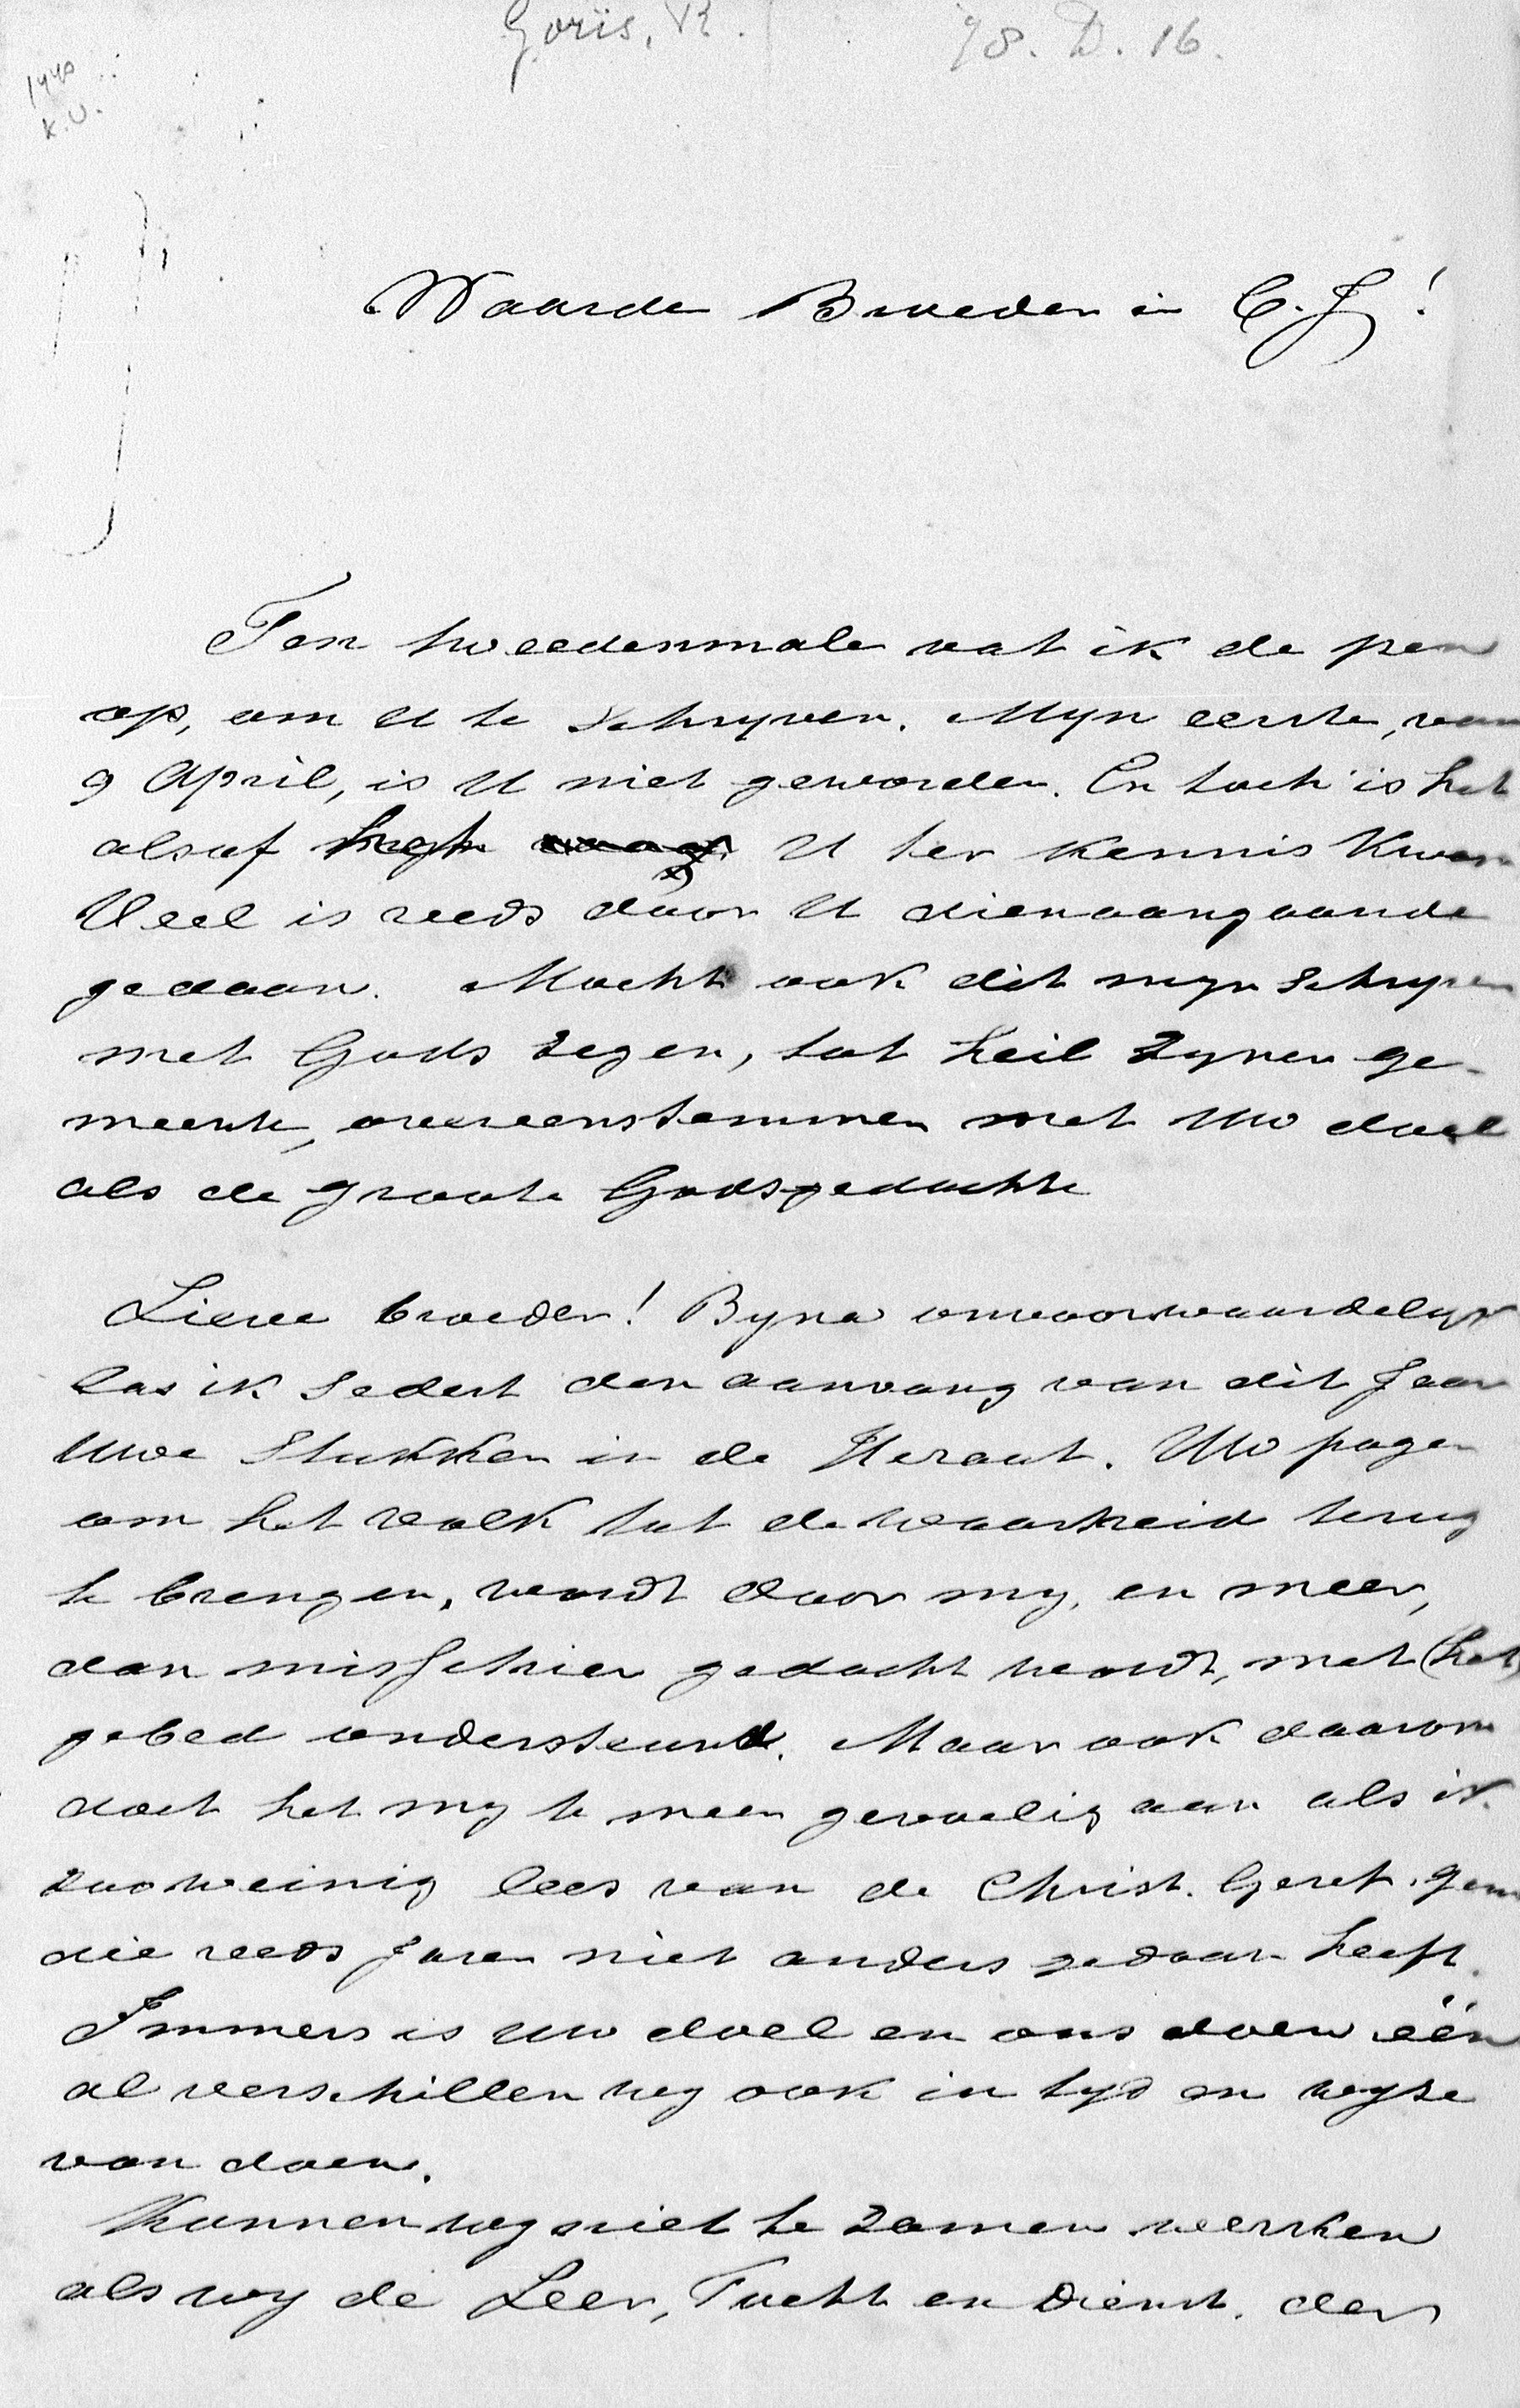 Goris, K.
78. D. 16.
1440
K.U.
Waarde Broeder in C. J!
Ten tweedenmale vat ik de pen
op, om U te schryven. Myn eerste, van
9 April, is U niet geworden. En toch is het
alsof U ter kennis kwam
Veel is reeds door U dienaangaande
gedaan. Mocht ook dit myn schryven
met Gods zegen, tot heil zyner ge-
meente, overeenstemmen met Uw doel
als de groote Godsgedachte
Lieve broeder! Byna onvoorwaardelyk
las ik sedert den aanvang van dit Jaar
Uwe Stukken in de Heraut. Uw pogen
om het volk tot de waarheid terug
te brengen, wordt door my, en meer,
dan misschien gedacht wordt, met (het)
gebed ondersteund. Maar ook daarom
doet het my te meer gevoelig aan als ik
zoo weinig lees van de Christ. Geref. gem
die reeds Jaren niet anders gedaan heeft.
Immers is Uw doel en ons doen één
al verschillen wy ook in tyd en wyze
van doen.
Kunnen wy niet te zamen werken
als wy de Leer, Tucht en Dienst der